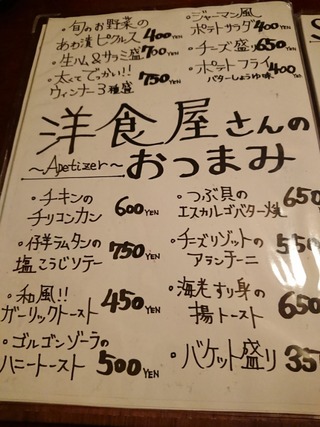 ・旬のお野菜の
あさ漬ピクルス 400YEN
・生ハム&サラミ盛 700YEN
・太くてでっかい!!
ウィンナー3種盛 750YEN
・ジャーマン風
ポテトサラダ 400YEN
・チーズ盛り 650YEN
・ポテトフライ 400YEN
バターしょうゆ味
洋食屋さんの
~Apetizer~
おつまみ
・チキンの
チリコンカン 600YEN
・仔羊ラムタンの
塩こうじソテー 750YEN
・和風!!
ガーリックトースト 450YEN
・ゴルゴンゾーラの
ハニートースト 500YEN
・つぶ貝の
エスカルゴバター焼 650
・チーズリゾットの
アランチーニ 550
・海老すり身の
揚トースト 650
・バケット盛り 35